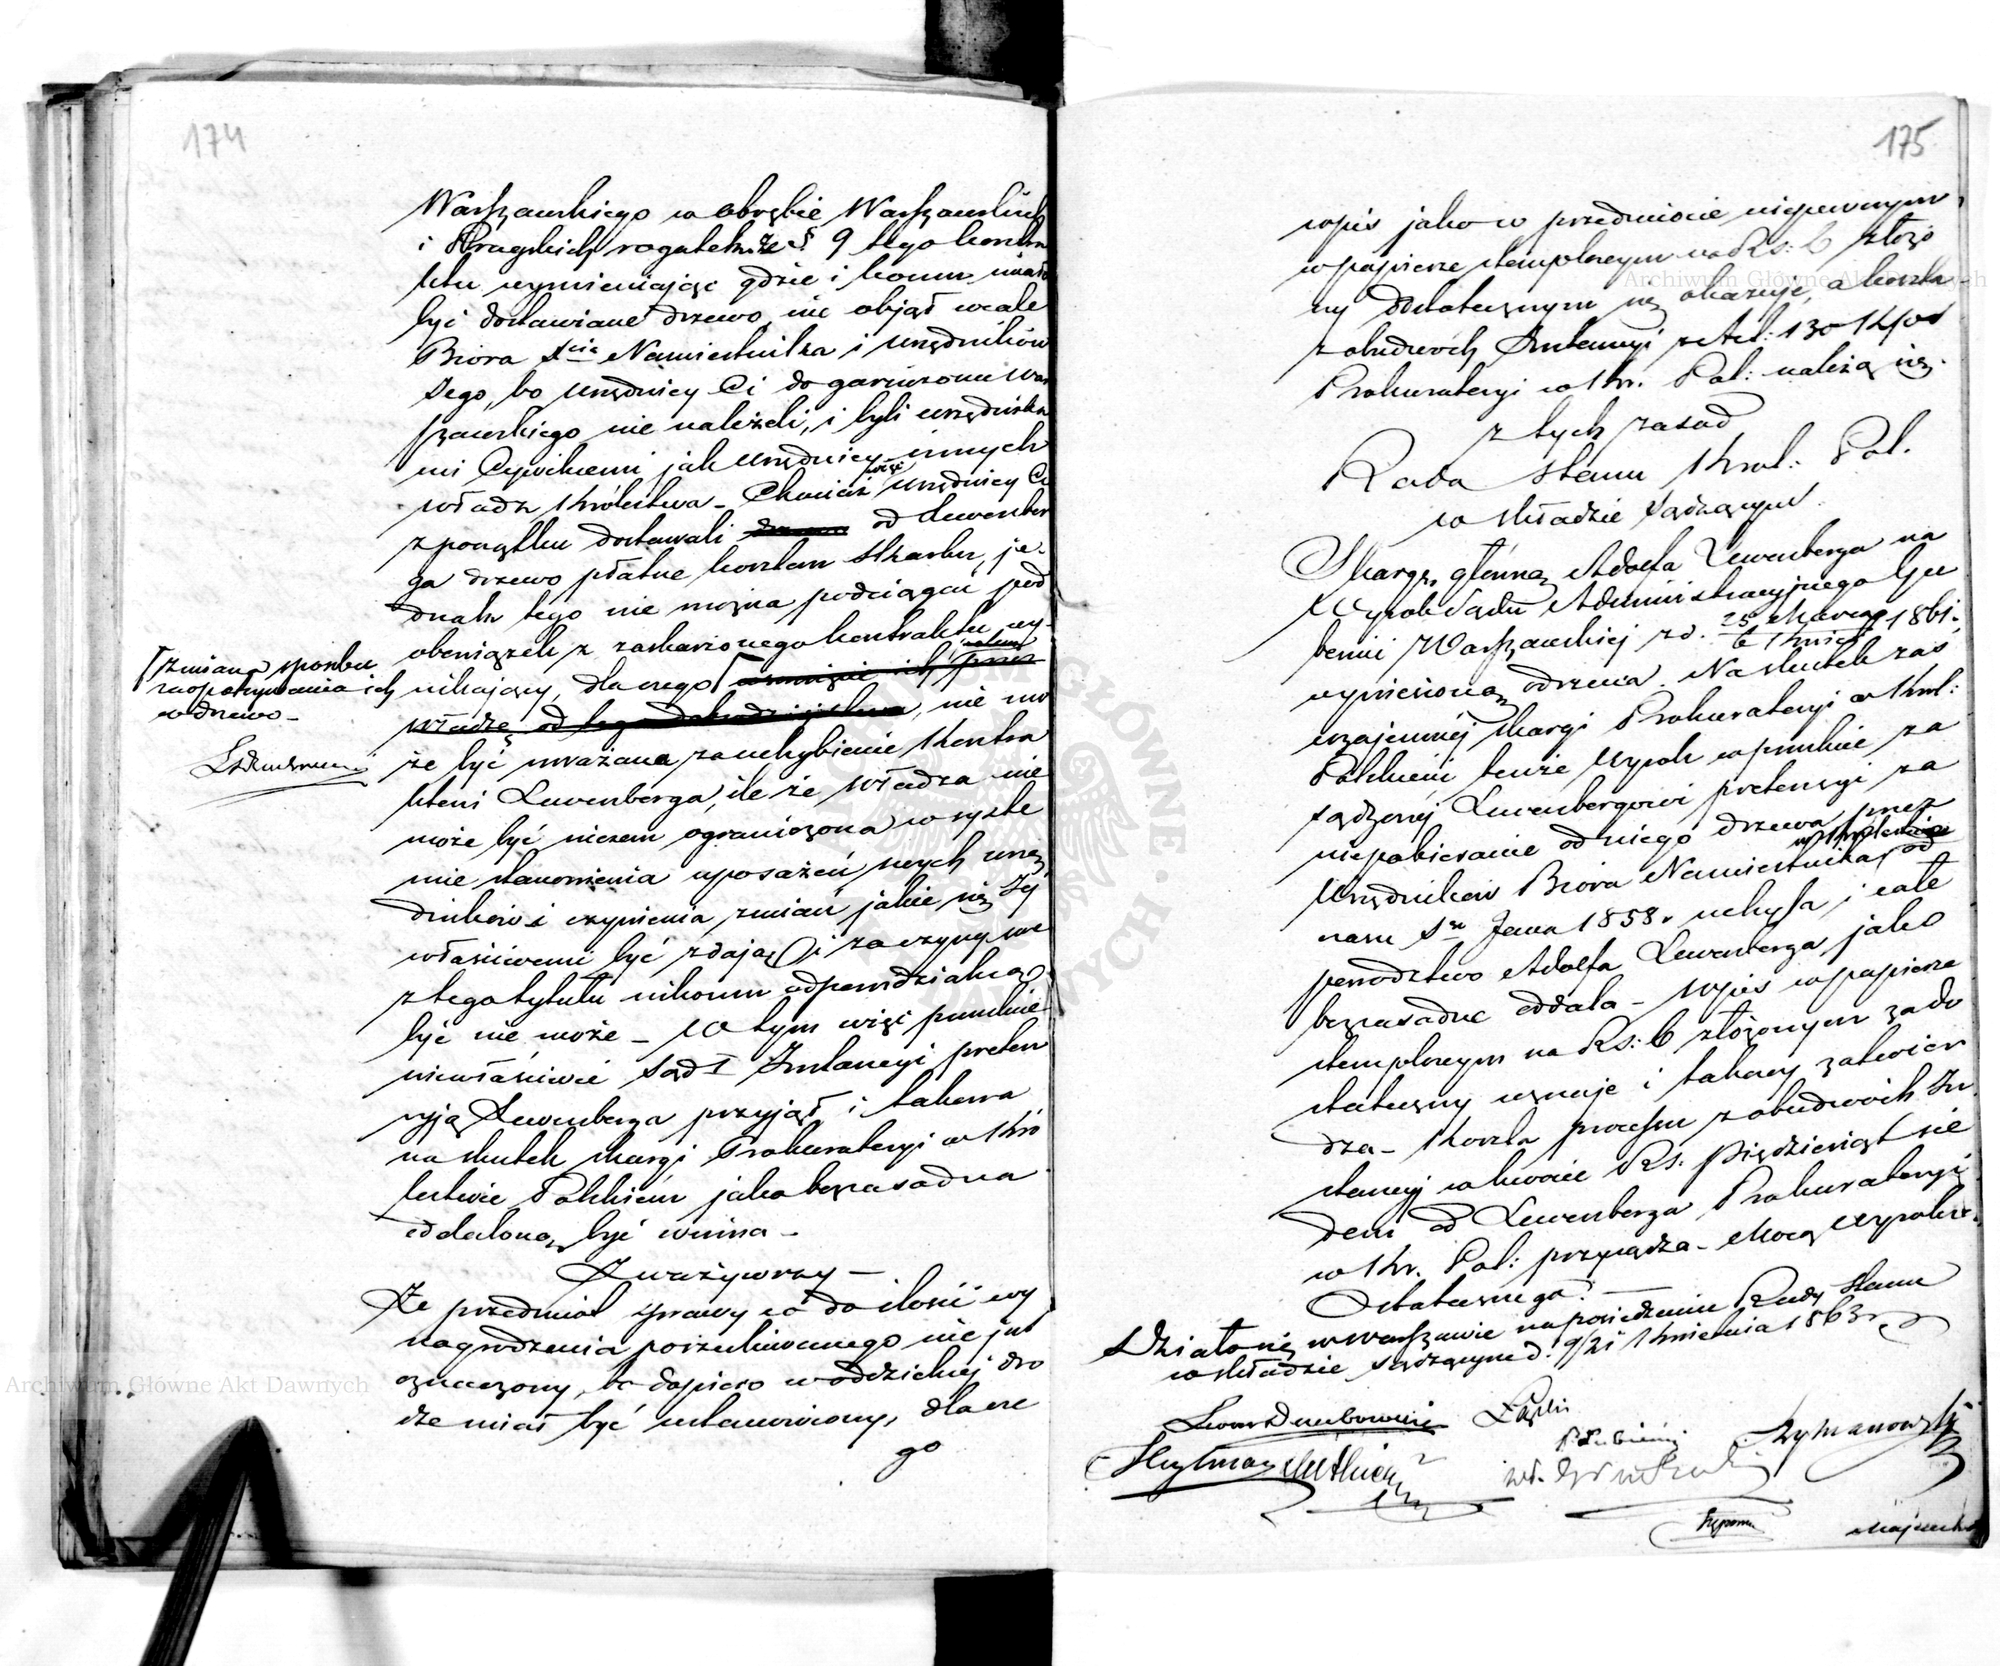 174
Warszawskiego w obrębie Warszawskich
i Pragskich rogatek. Że § 9 tego kontra
ktu wymieniając gdzie i komu miało
być dostawiane drzewo, nie objął wcale
Bióra Xcia Namiestnika i urzędników
Jego, bo urzędnicy Ci do garnizonu War
szawskiego nie należeli, i byli urzędnika
mi Cywilnemi jak urzędnicy innych
władz Królestwa – Chociaż więc urzędnicy Ci
z początku dostawali od Lewenber
ga drzewo płatne kosztem Skarbu, je-
dnak tego nie można podciągać pod
obowiązek z zaskarżonego kontraktu wy-
nikający, dla czego
władzę od tego, nie mo
że być uważana za uchybienie Kontra
ktowi Lewenberga, ile że władza nie
może być niczem ograniczona w syste
mie stanowienia uposażeń swych urzę
dników i czynienia zmian jakie się Jej
właściwemi być zdają, i za czyny swe
z tego tytułu nikomu odpowiedzialną
być nie może – W tym więc punkcie
niewłaściwie Sąd I Instancyi preten
syją Lewenberga przyjął i takowa
na skutek skargi Prokuratoryi w Kró
lestwie Polskiem jako bezzasadna
oddaloną być winna –
Zważywszy –
Że przedmiot sprawy co do ilości wy
nagrodzenia poszukiwanego nie jest
oznaczony, bo dopiero w oddzielnej dro
dze miał być ustanowiony, dla cze
go
zmiana sposobu
zaopatrywania ich
w drzewo –
175
wpis jako w przedmiocie niepewnym
w papierze stemplowym na Rs: 6 złożo
ny dostatecznym się okazuje, a koszta
z obudwóch Instancyi z Art: 130 K.P.S.
Prokuratoryi w Kr. Pol: należą się.
z tych zasad
Rada Stanu Król: Pol.
w składzie Sądzącym
Skargę główną Adolfa Lewenberga na
Wyrok Sądu Administracyjnego Gu
bernii Warszawskiej z d. 25 Marca / 6 Kwiet 1861.
wyniesioną odrzuca. Na skutek zaś
wzajemnej skargi Prokuratoryi w Król:
Polskiem tenże Wyrok w punkcie za
sądzonej Lewenbergowi pretensyi za
niepobieranie od niego drzewa przez
Urzędników Biura Namiestnika w Królestwie od
nasu Sgo Jana 1858 r. uchyla, i całe
powództwo Adolfa Lewenberga, jako
bezzasadne oddala – Wpis w papierze
stemplowym na Rs: 6 złożonym za do
stateczny uznaje i takowy zatwier
dza – Koszta processu z obudwóch In
stancyj w kwocie Rs. pięćdziesiąt sie
dem od Lewenberga Prokuratoryi
w Kr. Pol: przysądza – Mocą Wyroku
Ostatecznego. –
Działo się w Warszawie na posiedzeniu Rady Stanu
w składzie sądzącym d. 9/21 Kwietnia 1863 r.
Łubieński
Szymanowski
Archiwum Główne Akt Dawnych
Archiwum Główne Akt Dawnych